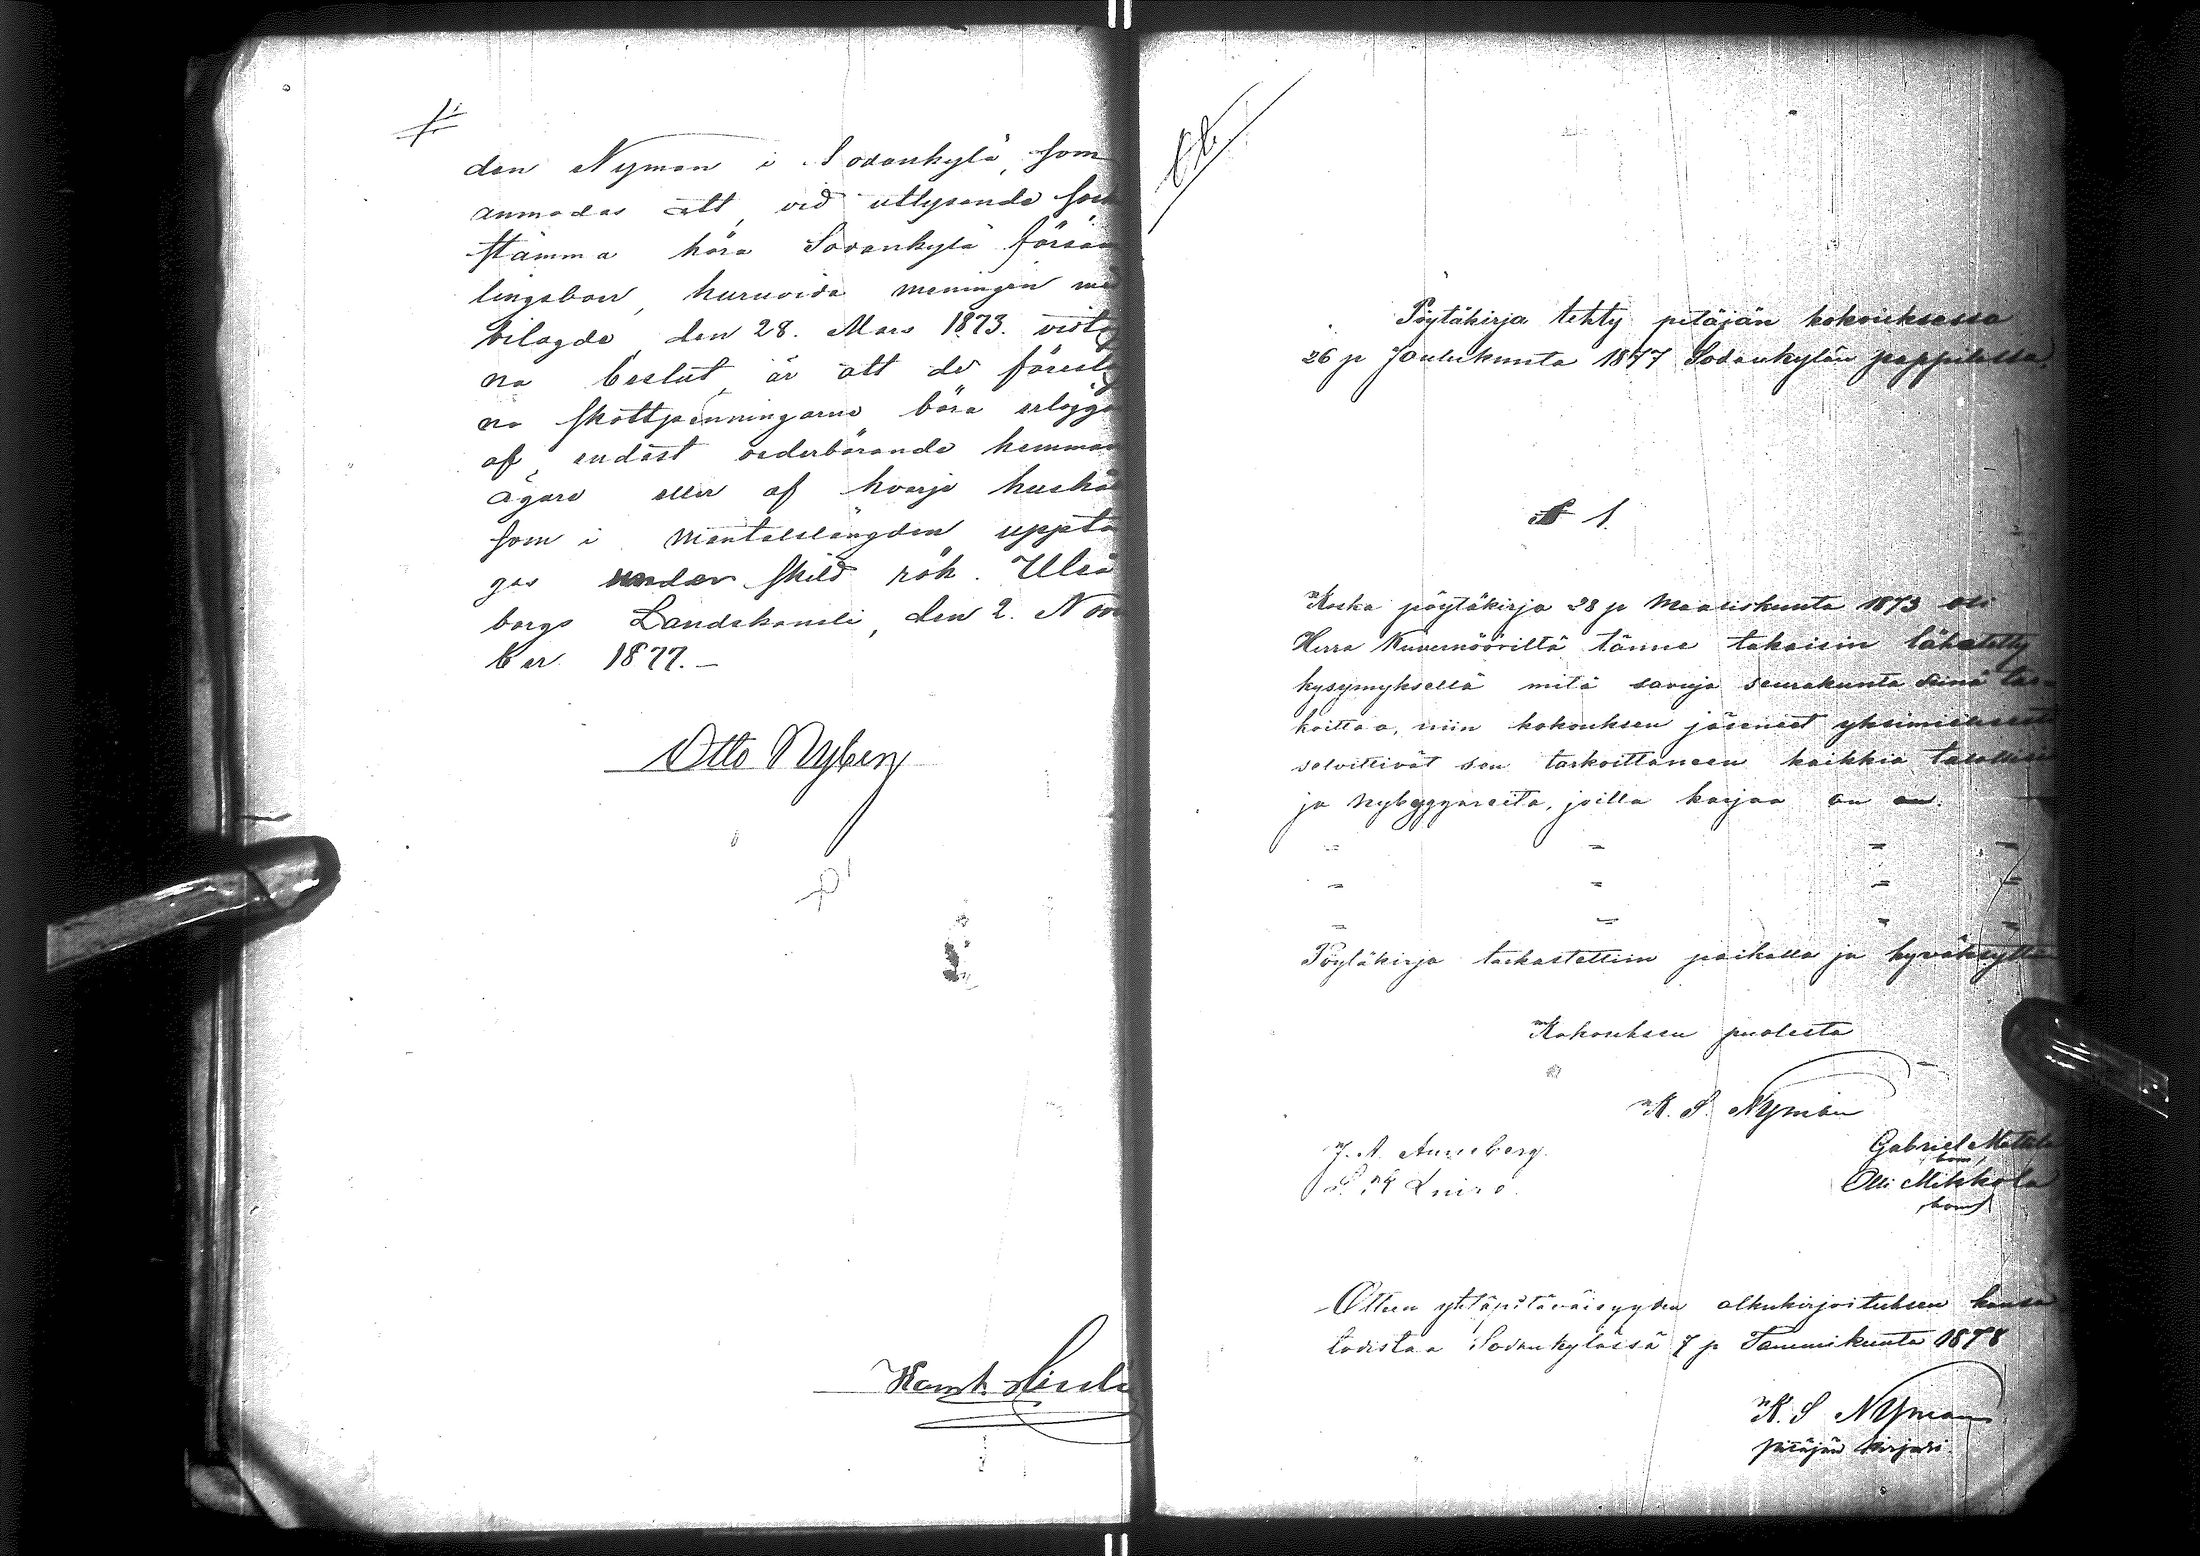 den Nyman i Sodankylä, som
anmodas att, vid utlysande sock
stämma höra Sodankylä försam
lingsboer, huruvida meningen med
bilagde, den 28. Mars 1873. vidtag
na beslut, är att de föreslag
na skottpenningarne böra erlägga
af, endast vederbörande hemman
ägare eller af hvarje hushå
som i mantalslängden uppta
gas under skild rök. Uleå
borgs Landskansli, den 2. Nov
ber 1877.-
Otto Nyberg
Pöytäkirja tehty pitäjän kokouksessa
26 p Joulukuuta 1877 Sodankylän pappilassa.
§ 1.
Koska pöytäkirja 28 p Maaliskuuta 1873 oli
Herra Kuvernööriltä tänne takaisin lähetetty
kysymyksellä mitä savuja seurakunta siinä tar-
koittaa, niin kokouksen jäsenet yksimielisesti
selvittivät sen tarkoittaneen kaikkia talollisia
ja nybyggareita, joilla karjaa on
Pöytäkirja tarkastettiin paikalla ja hyväksyttiin
Kokouksen puolesta
K. S. Nyman
J. A. Anneberg. Gabriel Mattila
Olli Mikkola
Otteen yhtäpitäväisyyden alkukirjoituksen kanssa
todistaa Sodankylässä 7 p Tammikuuta 1878
K. S Nyman
pitäjän kirjuri.